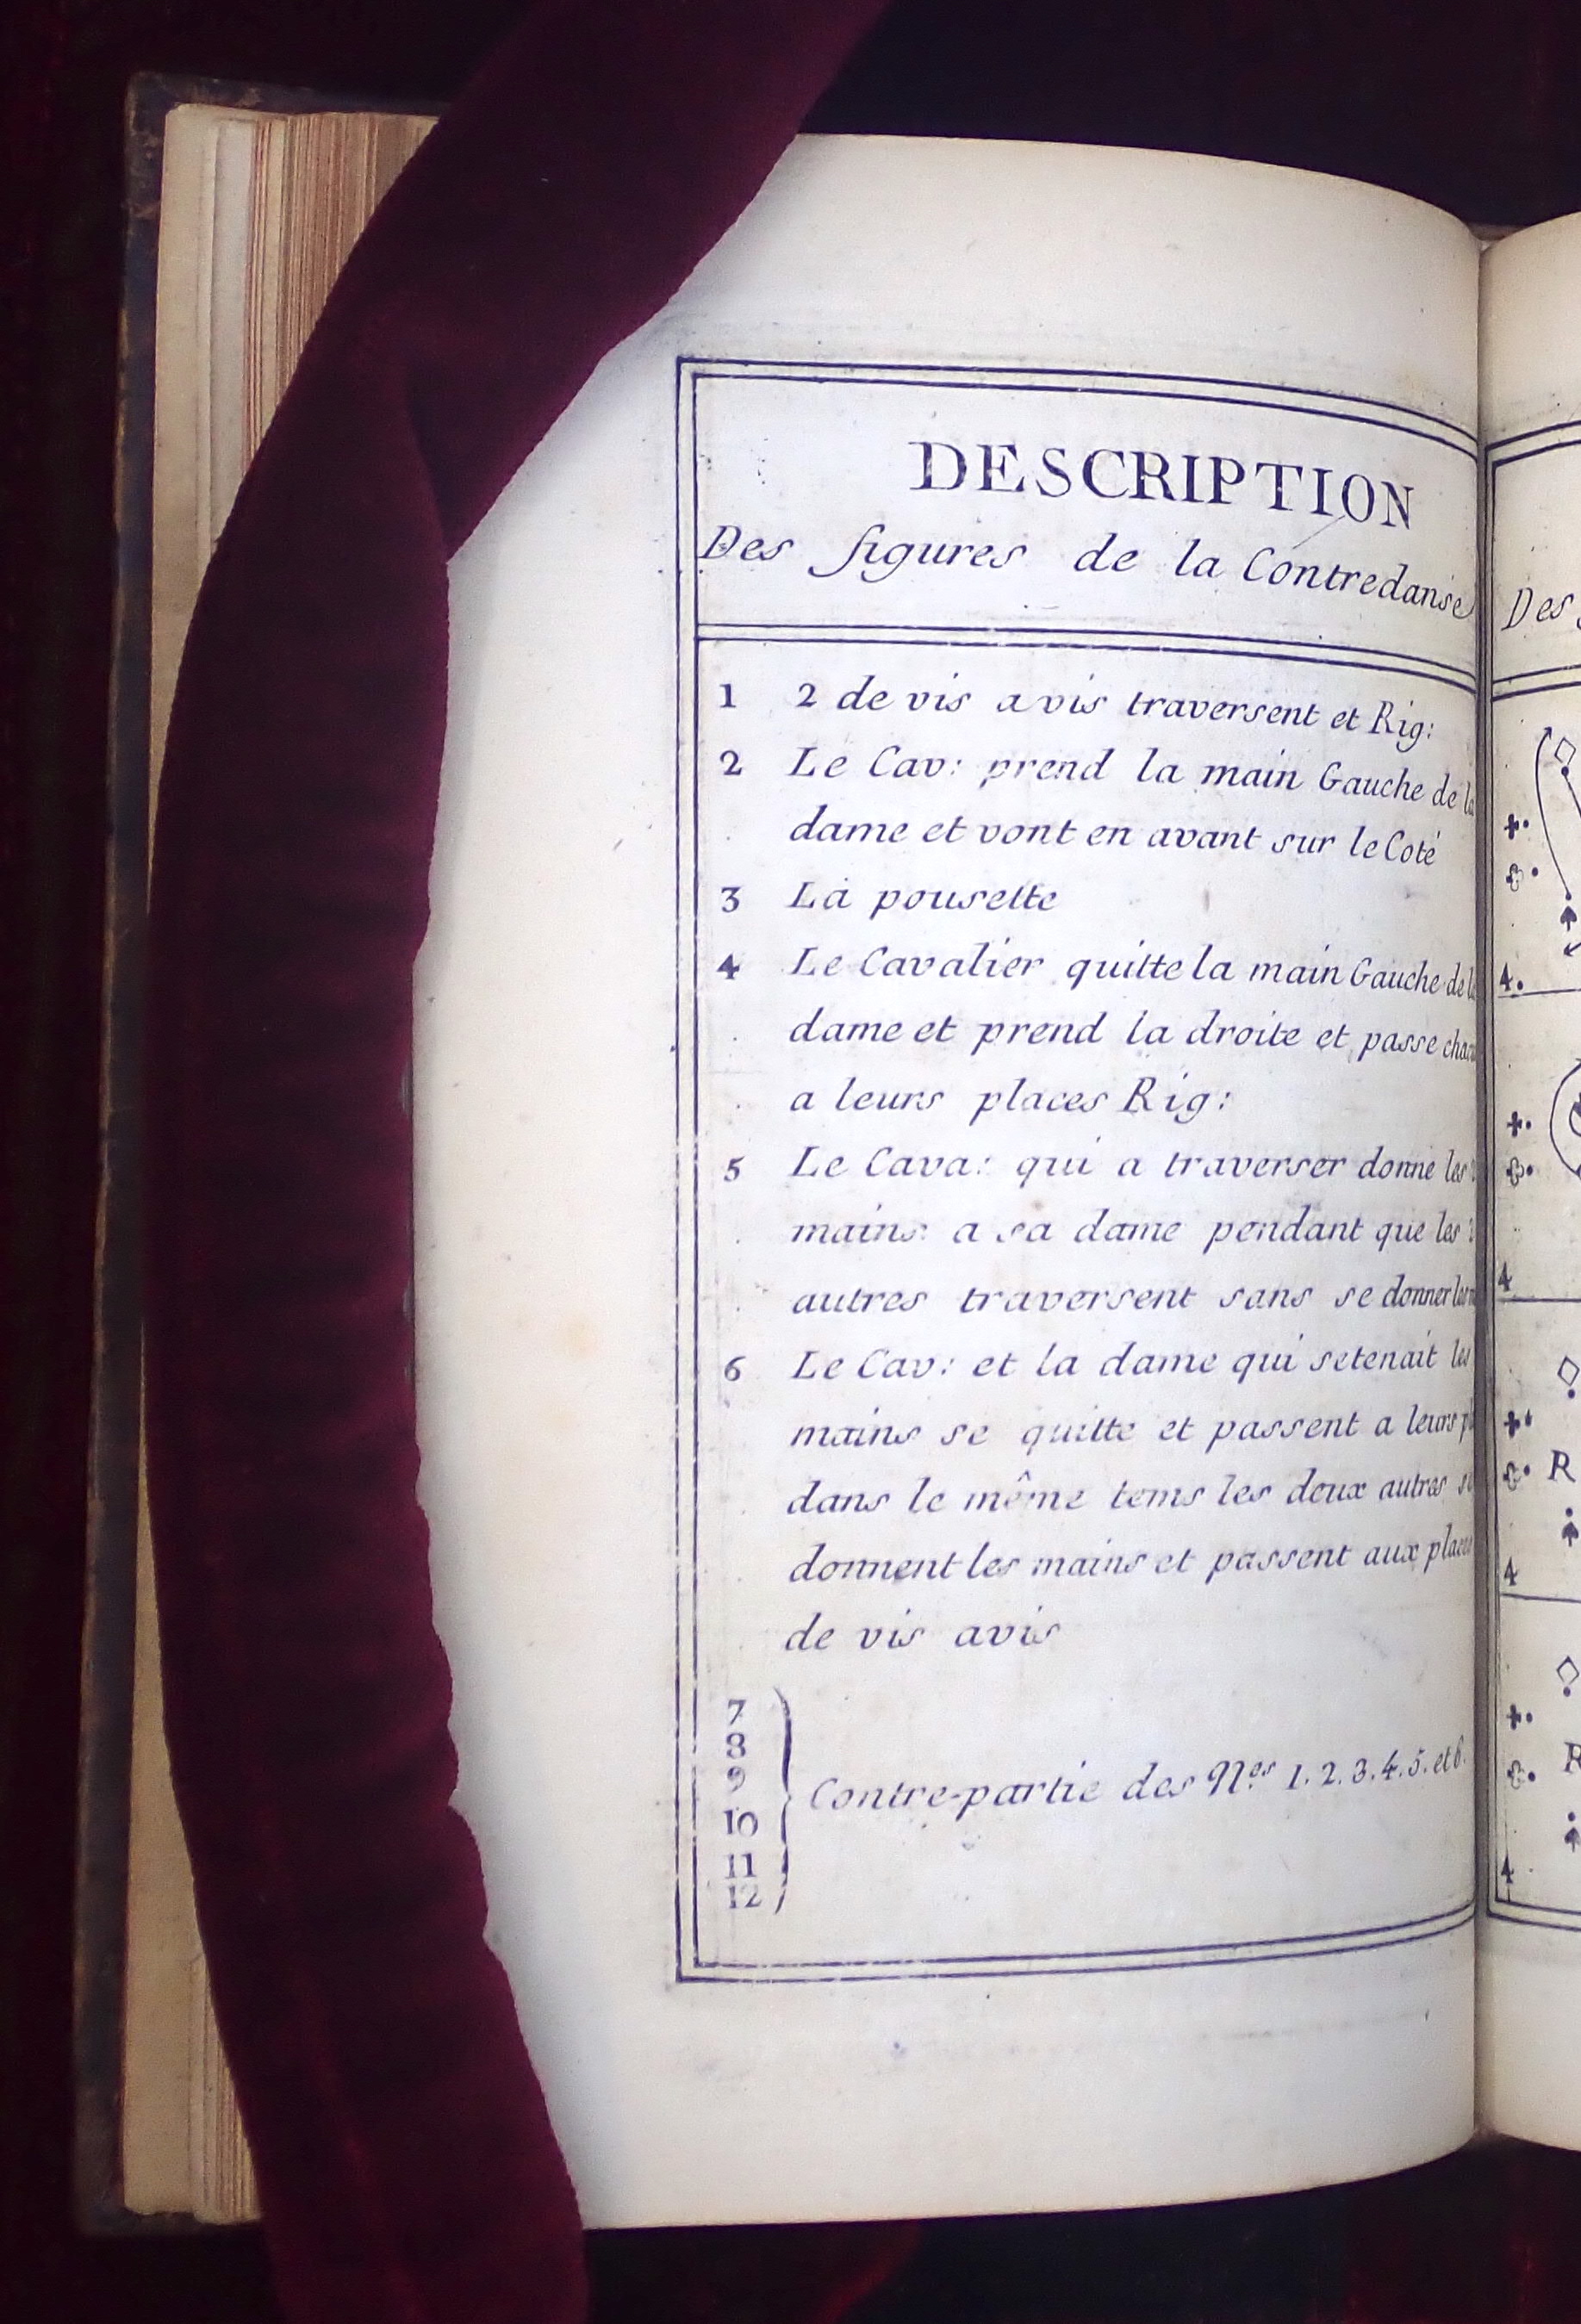 DESCRIPTION
Des figures de la Contredanse
1 2 de vis avis traversent et Rig:
2 Le Cav: prend la main Gauche de la
dame et vont en avant sur le Coté
3 La pousette
4 Le Cavalier quitte la main Gauche de
dame et prend la droite et passe
a leurs places Rig:
5 Le Cava: qui a traverser donne les
mains a sa dame pendant que les
autres traversent sans se donner
6 Le Cav: et la dame qui setenait les
mains se quitte et passent a leurs
dans le même tems les deux autres
donnent les mains et passent aux places
de vis avis
7
8
9
10
11
12
Contre-partie des Nos 1.2.3.4.5. et 6.
Des
4.
4
R
4
R
4